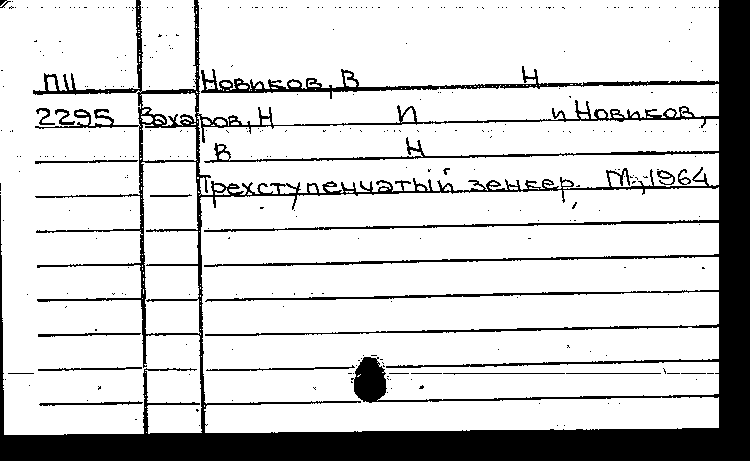 П11 Новиков, В Н
2295 Захаров, Н П и Новиков,
В Н
Трехступенчатый зенкер, М, 1964